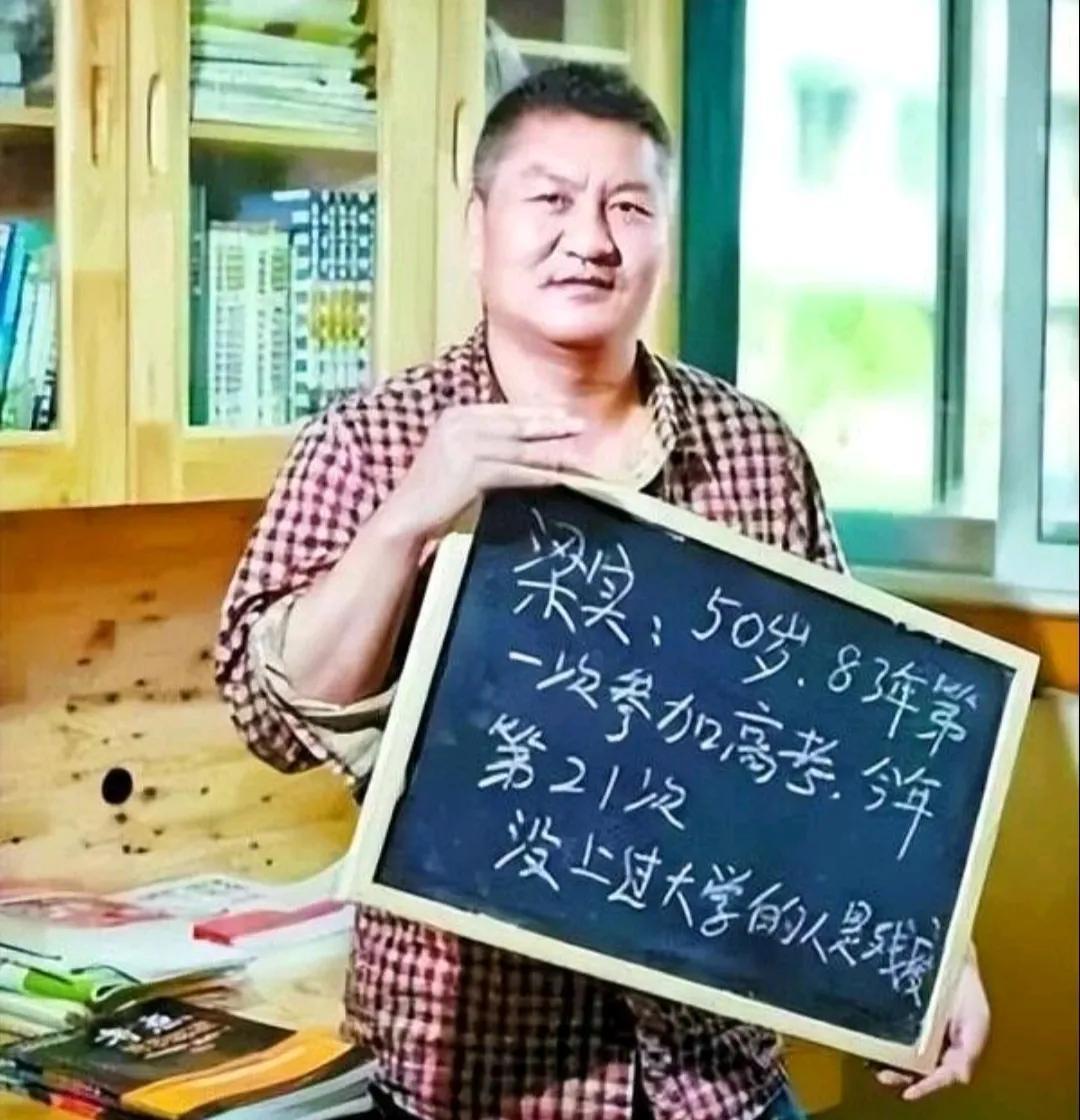 梁实：50岁．83年第
一次参加高考．今年
第21次
没上过大学的人是残废